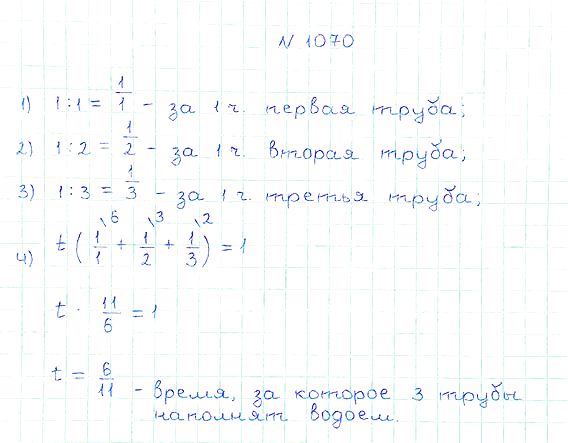 N 1070
1) 1:1 = 1/1 - за 1 ч. первая труба;
2) 1:2 = 1/2 - за 1 ч. вторая труба;
3) 1:3 = 1/3 - за 1 ч. третья труба;
4) t ( 1/1 \6 + 1/2 \3 + 1/3 \2 ) = 1
t · 11/6 = 1
t = 6/11 - время, за которое 3 трубы
наполнят водоем.